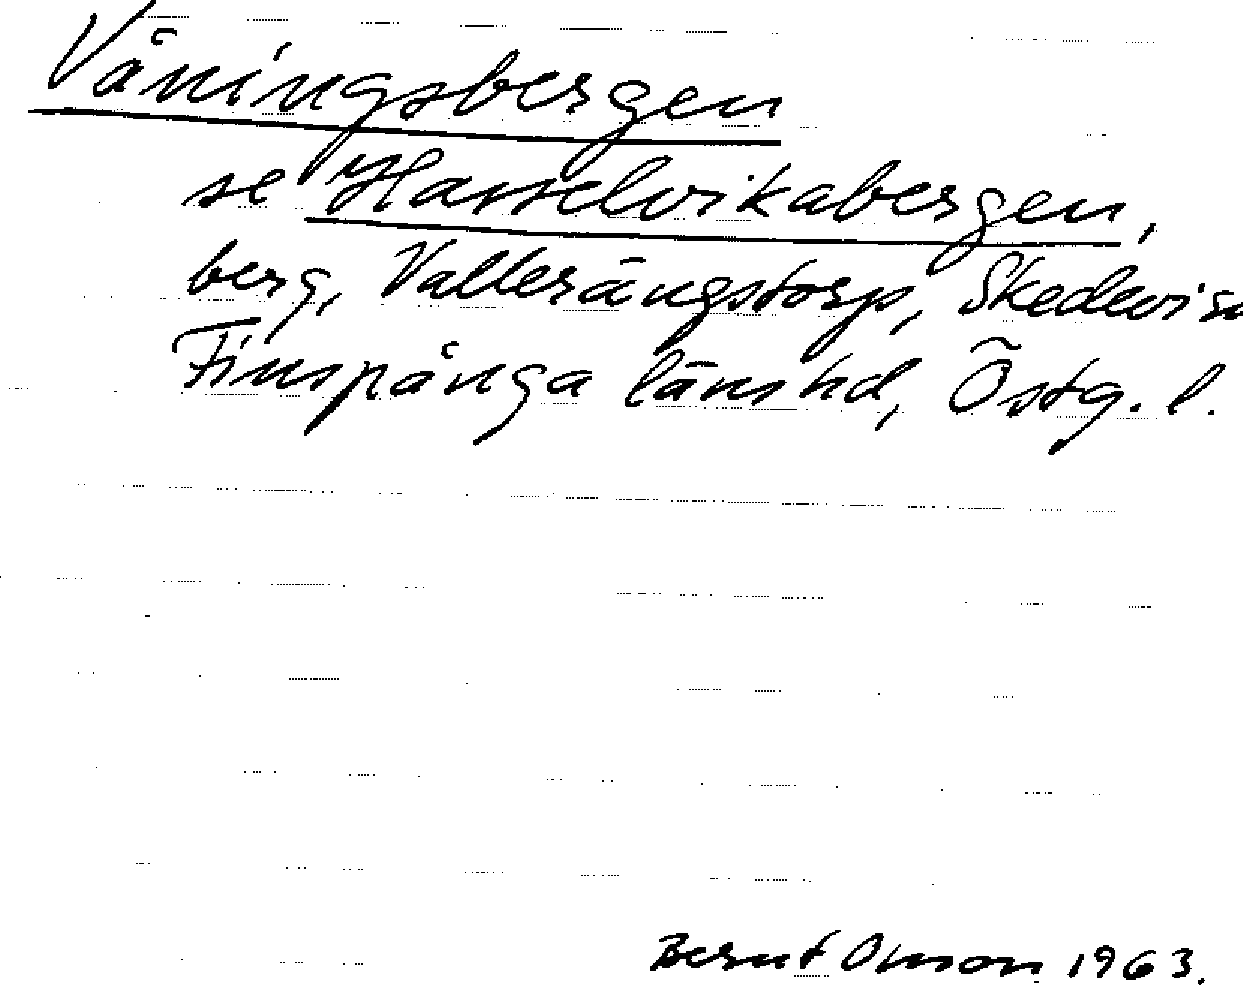 Våningsbergen
se Hasselvikabergen,
berg, Vallerängstorp, Skedevi sn
Finspånga länshd, Östg. l.
Bernt Omson 1963.